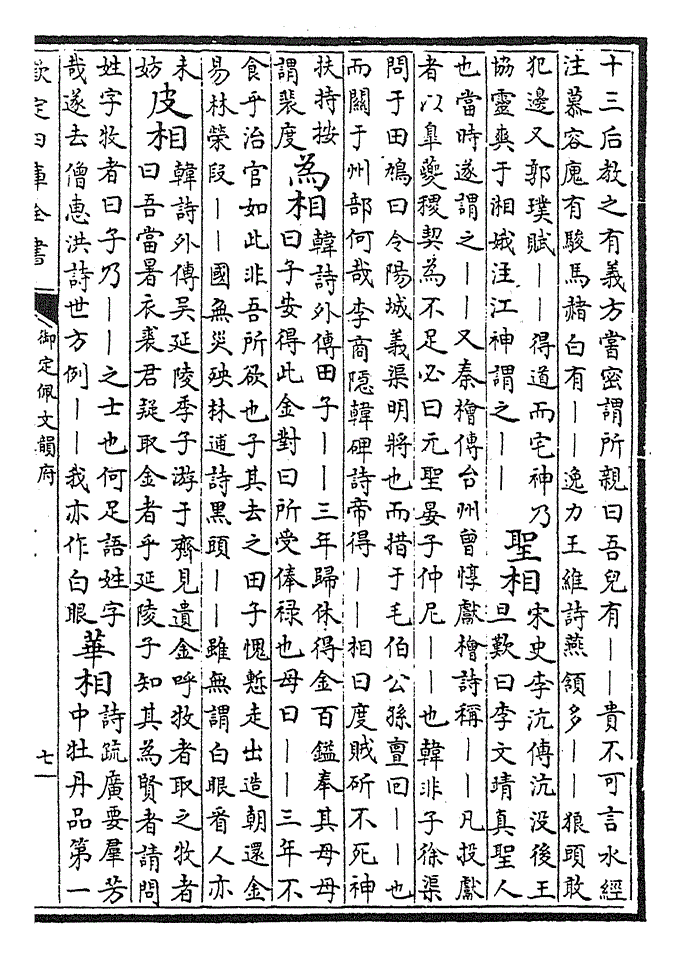 十三后教之有義方當密謂所親曰吾兒有——貴不可言水經
注慕容廆有駿馬赭白有——逸力王維詩燕頷多——狼頭敢
犯邊又郭璞賦——得道而宅神乃
協靈爽于湘娥注江神謂之——
聖相
宋史李沆傳沆没後王
旦歎曰李文靖真聖人
也當時遂謂之——又秦檜傳台州曾惇獻檜詩稱——凡投獻
者以臯夔稷契為不足必曰元聖晏子仲尼——也韓非子徐渠
問于田鳩曰令陽城義渠明將也而措于毛伯公孫亶回——也
而關于州部何哉李商隱韓碑詩帝得——相曰度賊斫不死神
扶持按
謂裴度
為相
韓詩外傳田子——三年歸休得金百鎰奉其母母
曰子安得此金對曰所受俸禄也母曰——三年不
食乎治官如此非吾所欲也子其去之田子愧慙走出造朝還金
易林榮段——國無災殃林逋詩黑頭——雖無謂白眼看人亦
未
妨
皮相
韓詩外傳吴延陵季子游于齊見遺金呼牧者取之牧者
曰吾當暑衣裘君疑取金者乎延陵子知其為賢者請問
姓字牧者曰子乃——之士也何足語姓字
哉遂去僧惠洪詩世方例——我亦作白眼
華相
詩疏廣要羣芳
中牡丹品第一
欽定四庫全書
御定佩文韻府
七一